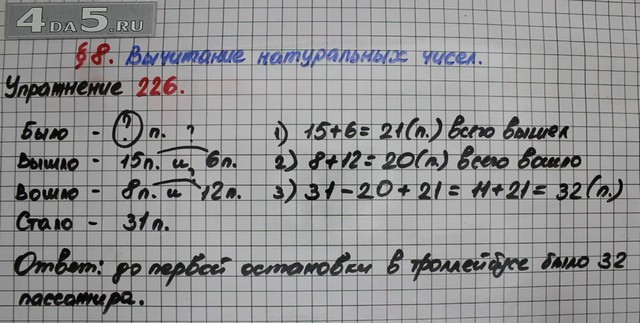 4DA5.RU
§8. Вычитание натуральных чисел.
Упражнение 226.
Было - ? п. ?
Вышло - 15п. и 6п.
Вошло - 8п. и 12п.
Стало - 31п.
1) 15+6=21(п.) всего вышел
2) 8+12=20(п) всего вошло
3) 31-20+21=11+21=32(п.)
Ответ: до первой остановки в троллейбусе было 32
пассажира.